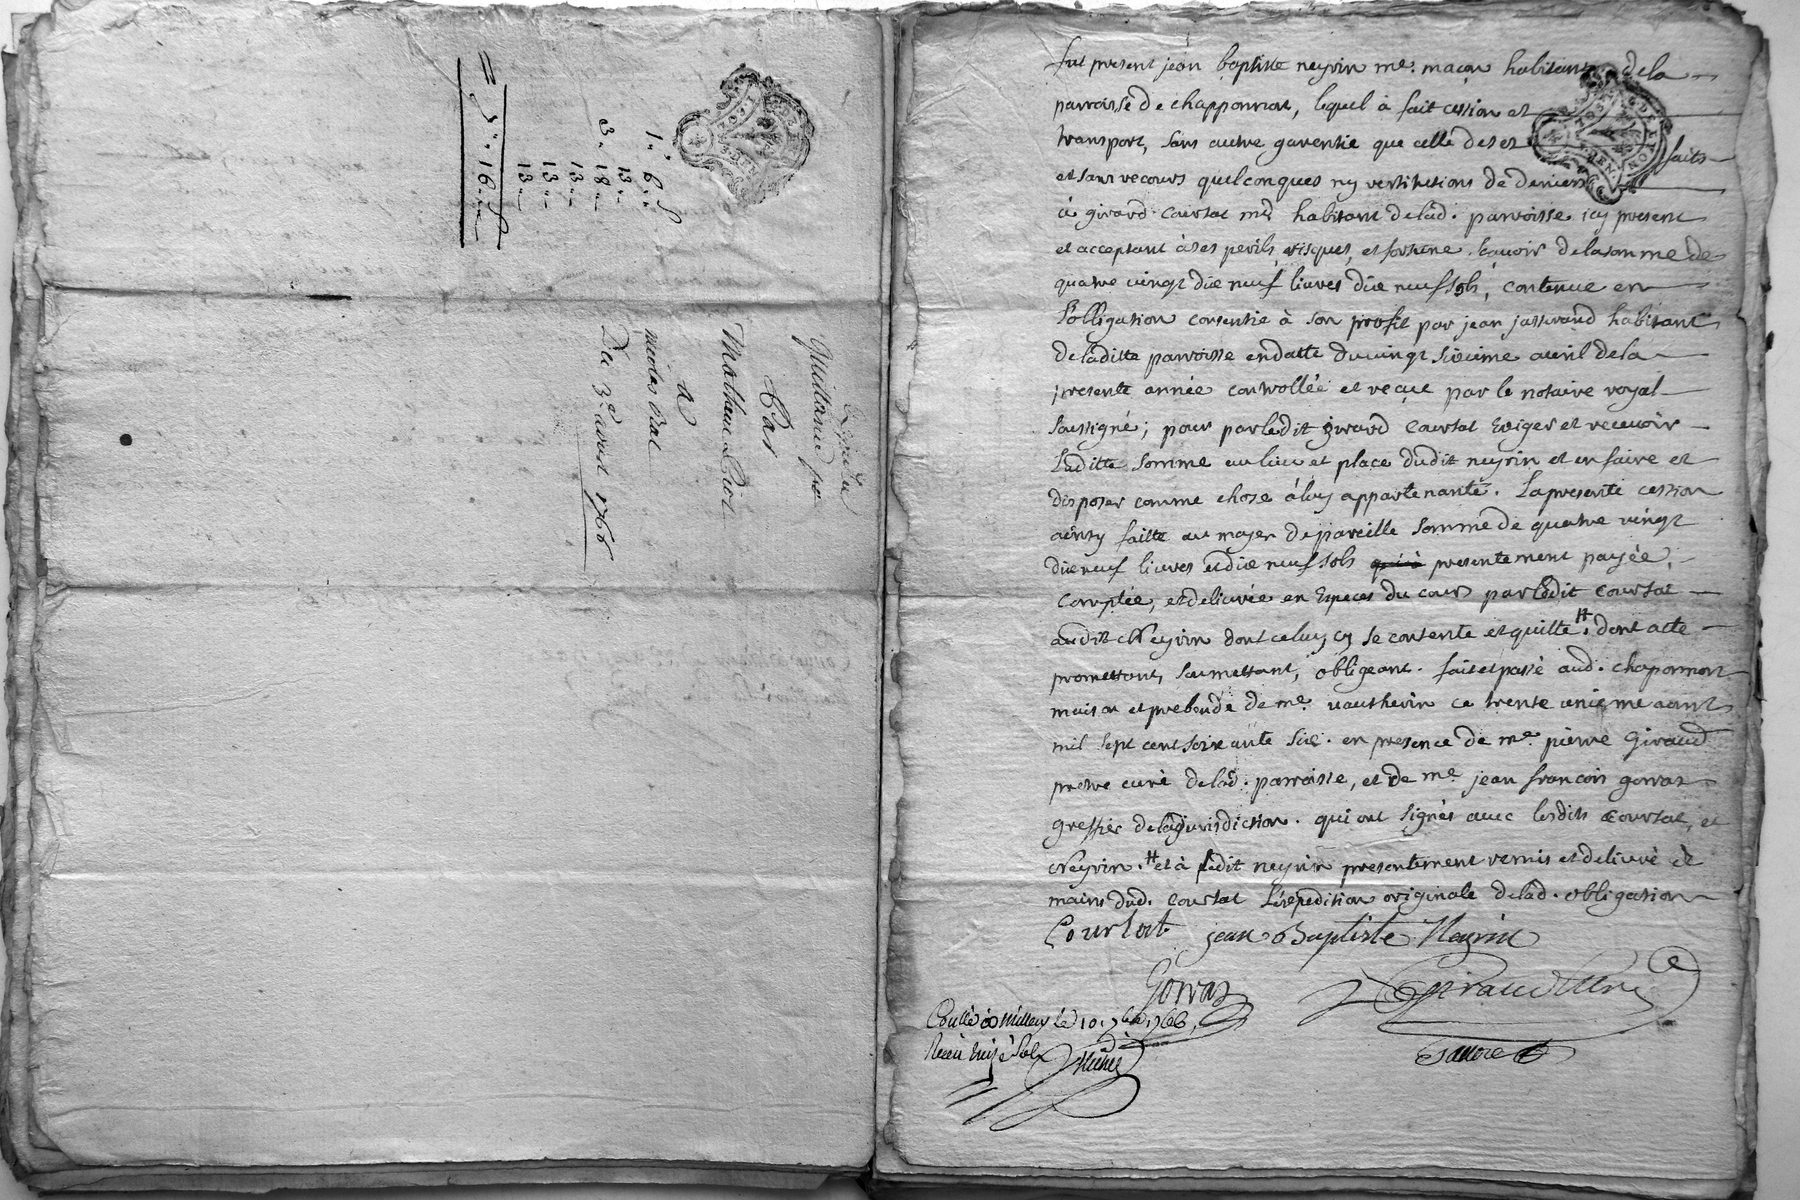 1.. 6.. s
13..
3.. 18..
13..
13..
13..
16..
Expédiée
Quittance po
Par
Mathieu Piot
A
nicolas Vial
Du 3e aoust 1766
fut present jean baptiste neyrin me. maçon habitant de la
parroisse de chapponnost, lequel à fait cession et
transport, sans autre garentie que celle de ses faits
et sans recours quelconques ny restitutions de deniers
à girard courtat md habitant de lad. parroisse icy present
et acceptant à ses perils, risques, et fortune. scavoir de la somme de
quatre vingt dix neuf livres dix neuf sols, contenue en
l'obligation consentie à son profit par jean jasserand habitant
de laditte parroisse en datte du vingt sixieme avril de la
presente année controllée et reçue par le notaire royal
soussigné; pour par ledit girard courtat exiger et recevoir
laditte somme au lieu et place dudit neyrin et en faire et
disposer comme chose à luy appartenante. La presente cession
ainsy faitte au moyen de pareille somme de quatre vingt
dix neuf livres et dix neuf sols presentement payée,
comptée, et delivrée en especes du cours par ledit courtat
audit Neyrin dont celuy cy se contente et quitte #. dont acte
promettant, soumettant, obligeant. fait et passé aud. chaponnost
maison et prebende de me. vautherin ce trente unieme aoust
mil sept cent soixante six. en presence de me. pierre Giraud
pretre curé de lad. parroisse, et de me jean françois gorraz
greffier de la jurisdiction. qui ont signés avec lesdits courtat, et
Neyrin. # et à ledit neyrin presentement remis et delivré ès
mains dud. courtat l'expedition originale de lad. obligation
Courtat jean Baptiste Neyrin
Gorraz
Giraud Curé
Conllé à Millery le 10. 7bre 1766,
Receu treize sols